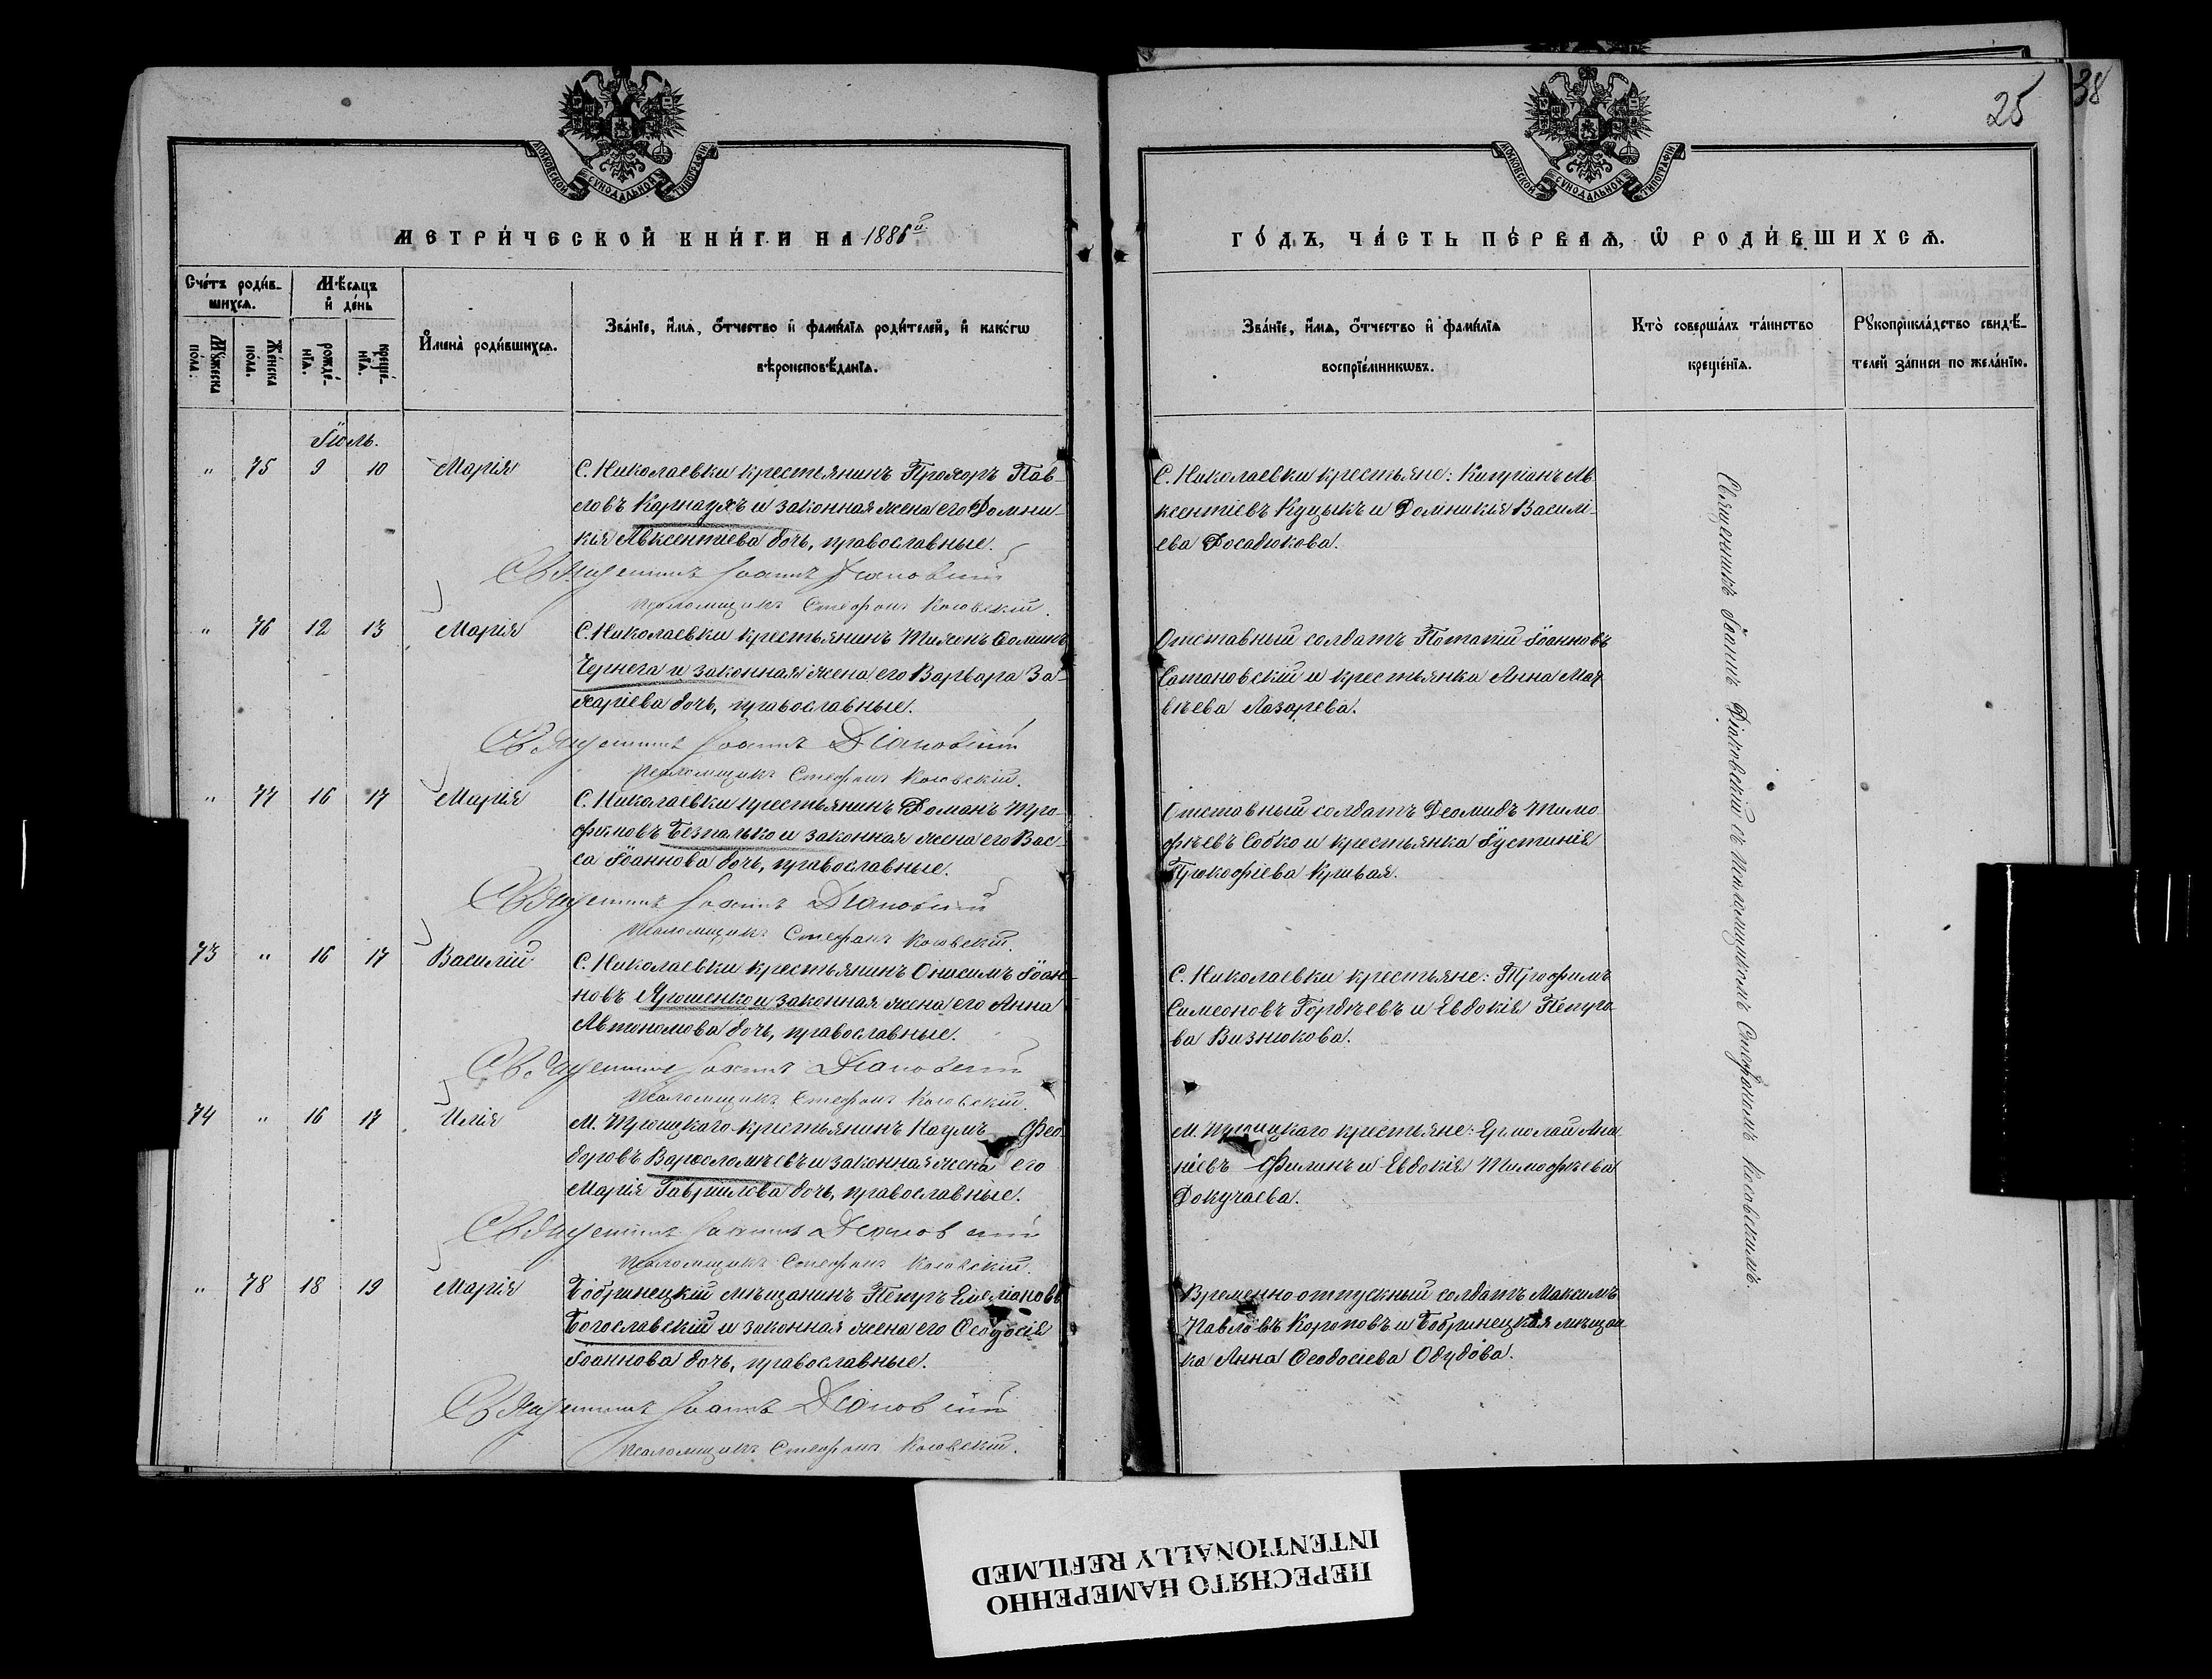 38
25
МОСКОВСКОЙ СѴНОДАЛЬНОЙ ТИПОГРАФІИ
МОСКОВСКОЙ СѴНОДАЛЬНОЙ ТИПОГРАФІИ
МЕТРИ́ЧЕСКОЙ КНИ́ГИ НА 1886й
ГО́ДЪ, ЧА́СТЬ ПЕ́РВАѦ, Ѡ РОДИ́ВШИХСѦ.
Сче́тъ роди́в-
шихсѧ.
Мꙋ́жеска
по́ла.
Же́нска
по́ла.
Мѣ́сѧцъ
и҆ де́нь
рожде́-
нїѧ.
креще́-
нїѧ.
И҆мена̀ роди́вшихсѧ.
Зва́нїе, и҆́мѧ, ѻ҆́тчество и҆ фами́лїѧ роди́телей, и҆ како́гѡ
вѣроисповѣ́данїѧ.
Зва́нїе, и҆́мѧ, ѻ҆́тчество и҆ фами́лїѧ
воспрїе́мникѡвъ.
Кто̀ соверша́лъ та́инство
креще́нїѧ.
Рꙋкоприкла́дство свидѣ́-
телей за́писи по жела́нїю.
Іюль.
" 75 9 10 Марія
С. Николаевки крестьянинъ Прохоръ Пав-
ловъ Карнаухъ и законная жена его Домни-
кія Авксентиева дочь, православные.
Священникъ Іоаннъ Діаковскій
Псаломщикъ Стефанъ Косовскій.
С. Николаевки крестьяне: Кипріанъ Ав
ксентіевъ Куцыкъ и Домникія Василі-
ева Досадюкова.
" 76 12 13 Марія
С. Николаевки крестьянинъ Тихонъ Ѳоминъ
Чернега и законная жена его Варвара За-
харіева дочь, православные.
Священникъ Іоаннъ Діаковскій
Псаломщикъ Стефанъ Косовскій.
Отставный солдатъ Потапій Іоанновъ
Сатановскій и крестьянка Анна Мат
вѣева Лазарева.
" 77 16 17 Марія
С. Николаевки крестьянинъ Романъ Тро-
фимовъ Безпалько и законная жена его Вас-
са Іоаннова дочь, православные.
Священникъ Іоаннъ Діаковскій
Псаломщикъ Стефанъ Косовскій.
Отставный солдатъ Деомидъ Тимо
фѣевъ Собко и крестьянка Іустинія
Прокофіева Кривая.
73 " 16 17 Василій
С. Николаевки крестьянинъ Онисимъ Іоан-
новъ Ярошенко и законная жена его Анна
Автономова дочь, православные.
Священникъ Іоаннъ Діаковскій
Псаломщикъ Стефанъ Косовскій.
С. Николаевки крестьяне: Трофимъ
Симеоновъ Гордѣевъ и Евдокія Петро-
ва Визнюкова.
74 " 16 17 Илія
М. Троицкаго крестьянинъ Наумъ Фео-
доровъ Варѳоломѣевъ и законная жена его
Марія Гавриилова дочь, православные.
Священникъ Іоаннъ Діаковскій
Псаломщикъ Стефанъ Косовскій.
М. Троицкаго крестьяне: Ермолай Ана
ніевъ Филинъ и Евдокія Тимофѣева
Докучаева.
" 78 18 19 Марія
Бобринецкій мѣщанинъ Петръ Емеліановъ
Богославскій и законная жена его Ѳеодосія
Іоаннова дочь, православные.
Священникъ Іоаннъ Діаковскій
Псаломщикъ Стефанъ Косовскій.
Временно-отпускный солдатъ Максимъ
Павловъ Короповъ и Бобринецкая мѣщан
ка Анна Ѳеодосіева Одудова.
Священникъ Іоаннъ Діаковскій съ псаломщикомъ Стефаномъ Косовскимъ.
ПЕРЕСНЯТО НАМЕРЕННО
INTENTIONALLY REFILMED